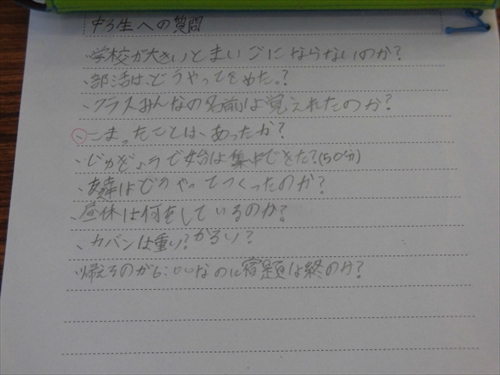 中学生への質問
・学校が大きいとまいごにならないのか?
・部活はどうやってきめた?
・クラスみんなの名前は覚えれたのか?
・こまったことは、あったか?
・じゅぎょうで始は集中できた?(50分)
・友達はどうやってつくったのか?
・昼休は何をしているのか?
・カバンは重い?かるい?
・帰えるのが6:00なのに宿題は終のか?